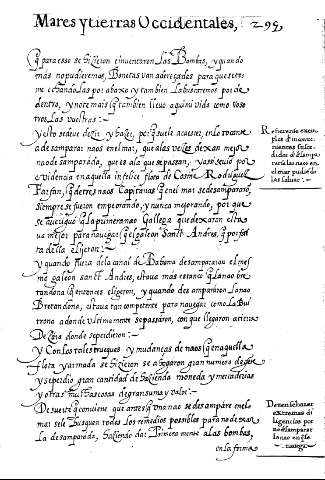 Mares y tierras Occidentales, 295
q̃ para esso se hizieron e inventaron las Bombas, y quando
mas no pudieremos, Bonetas van adereçadas para
echandolas por abaxo y tambien la buscaremos por de
dentro, y no te mas q̃ tambien llevo aquí mi vida como voso
tros las vuestras:
y esto se deve dezir y hazer, porq̃ suele acaescer, en lo tocante
a desamparar naos enel mar, que alas vezes dexan mejor
nao desamparada, que es ala que se passan, y assi se vio por
evidencia en aquella infelice flota de Cosme Rodriguez
Farfan, q̃ de tres naos Capitanas q̃ enel mar se desampararon,
siempre se fueron empeorando, y nunca mejorando, por que
se averiguo q̃ la primera nao Gallega que dexaron estava
mejor para navegar q̃ el galeon Sanct Andres, q̃ por fal
ta della elijeron:
y quando fuera dela canal de Bahama desampararon el mes
mo galeon Sanct Andres, estava mas estanco q̃ la nao bre
tandona q̃ entonces elijeron, y quando des ampararon la nao
Bretandona, estava tan competente para navegar como la Bui
trona adonde ultimamente se passaron, con que llegaron acerca
De donde se perdieron:
y Con los tales trueques y mudanças de naos q̃ en aquella
flota y armada se hizieron se ahogaron gran numero de gente
y se perdio gran cantidad de hazienda moneda y mercaderias
y otras muchas cosas de gran suma y valor:
De suerte q̃ conviene que antes q̃ una nao se desampare enel
mar se le busquen todos los remedios possibles para no dexar
La desamparada, haziendo da: Primera mente alas bombas,
en la forma
Refierense exem
plos de incon
nientes suce
didos de desampa
rar las naos en
el mar pudiedo
las salvar:
Deven se buscar
extremas di
ligencias por
no desamparar
la nao en q̃ se
navega